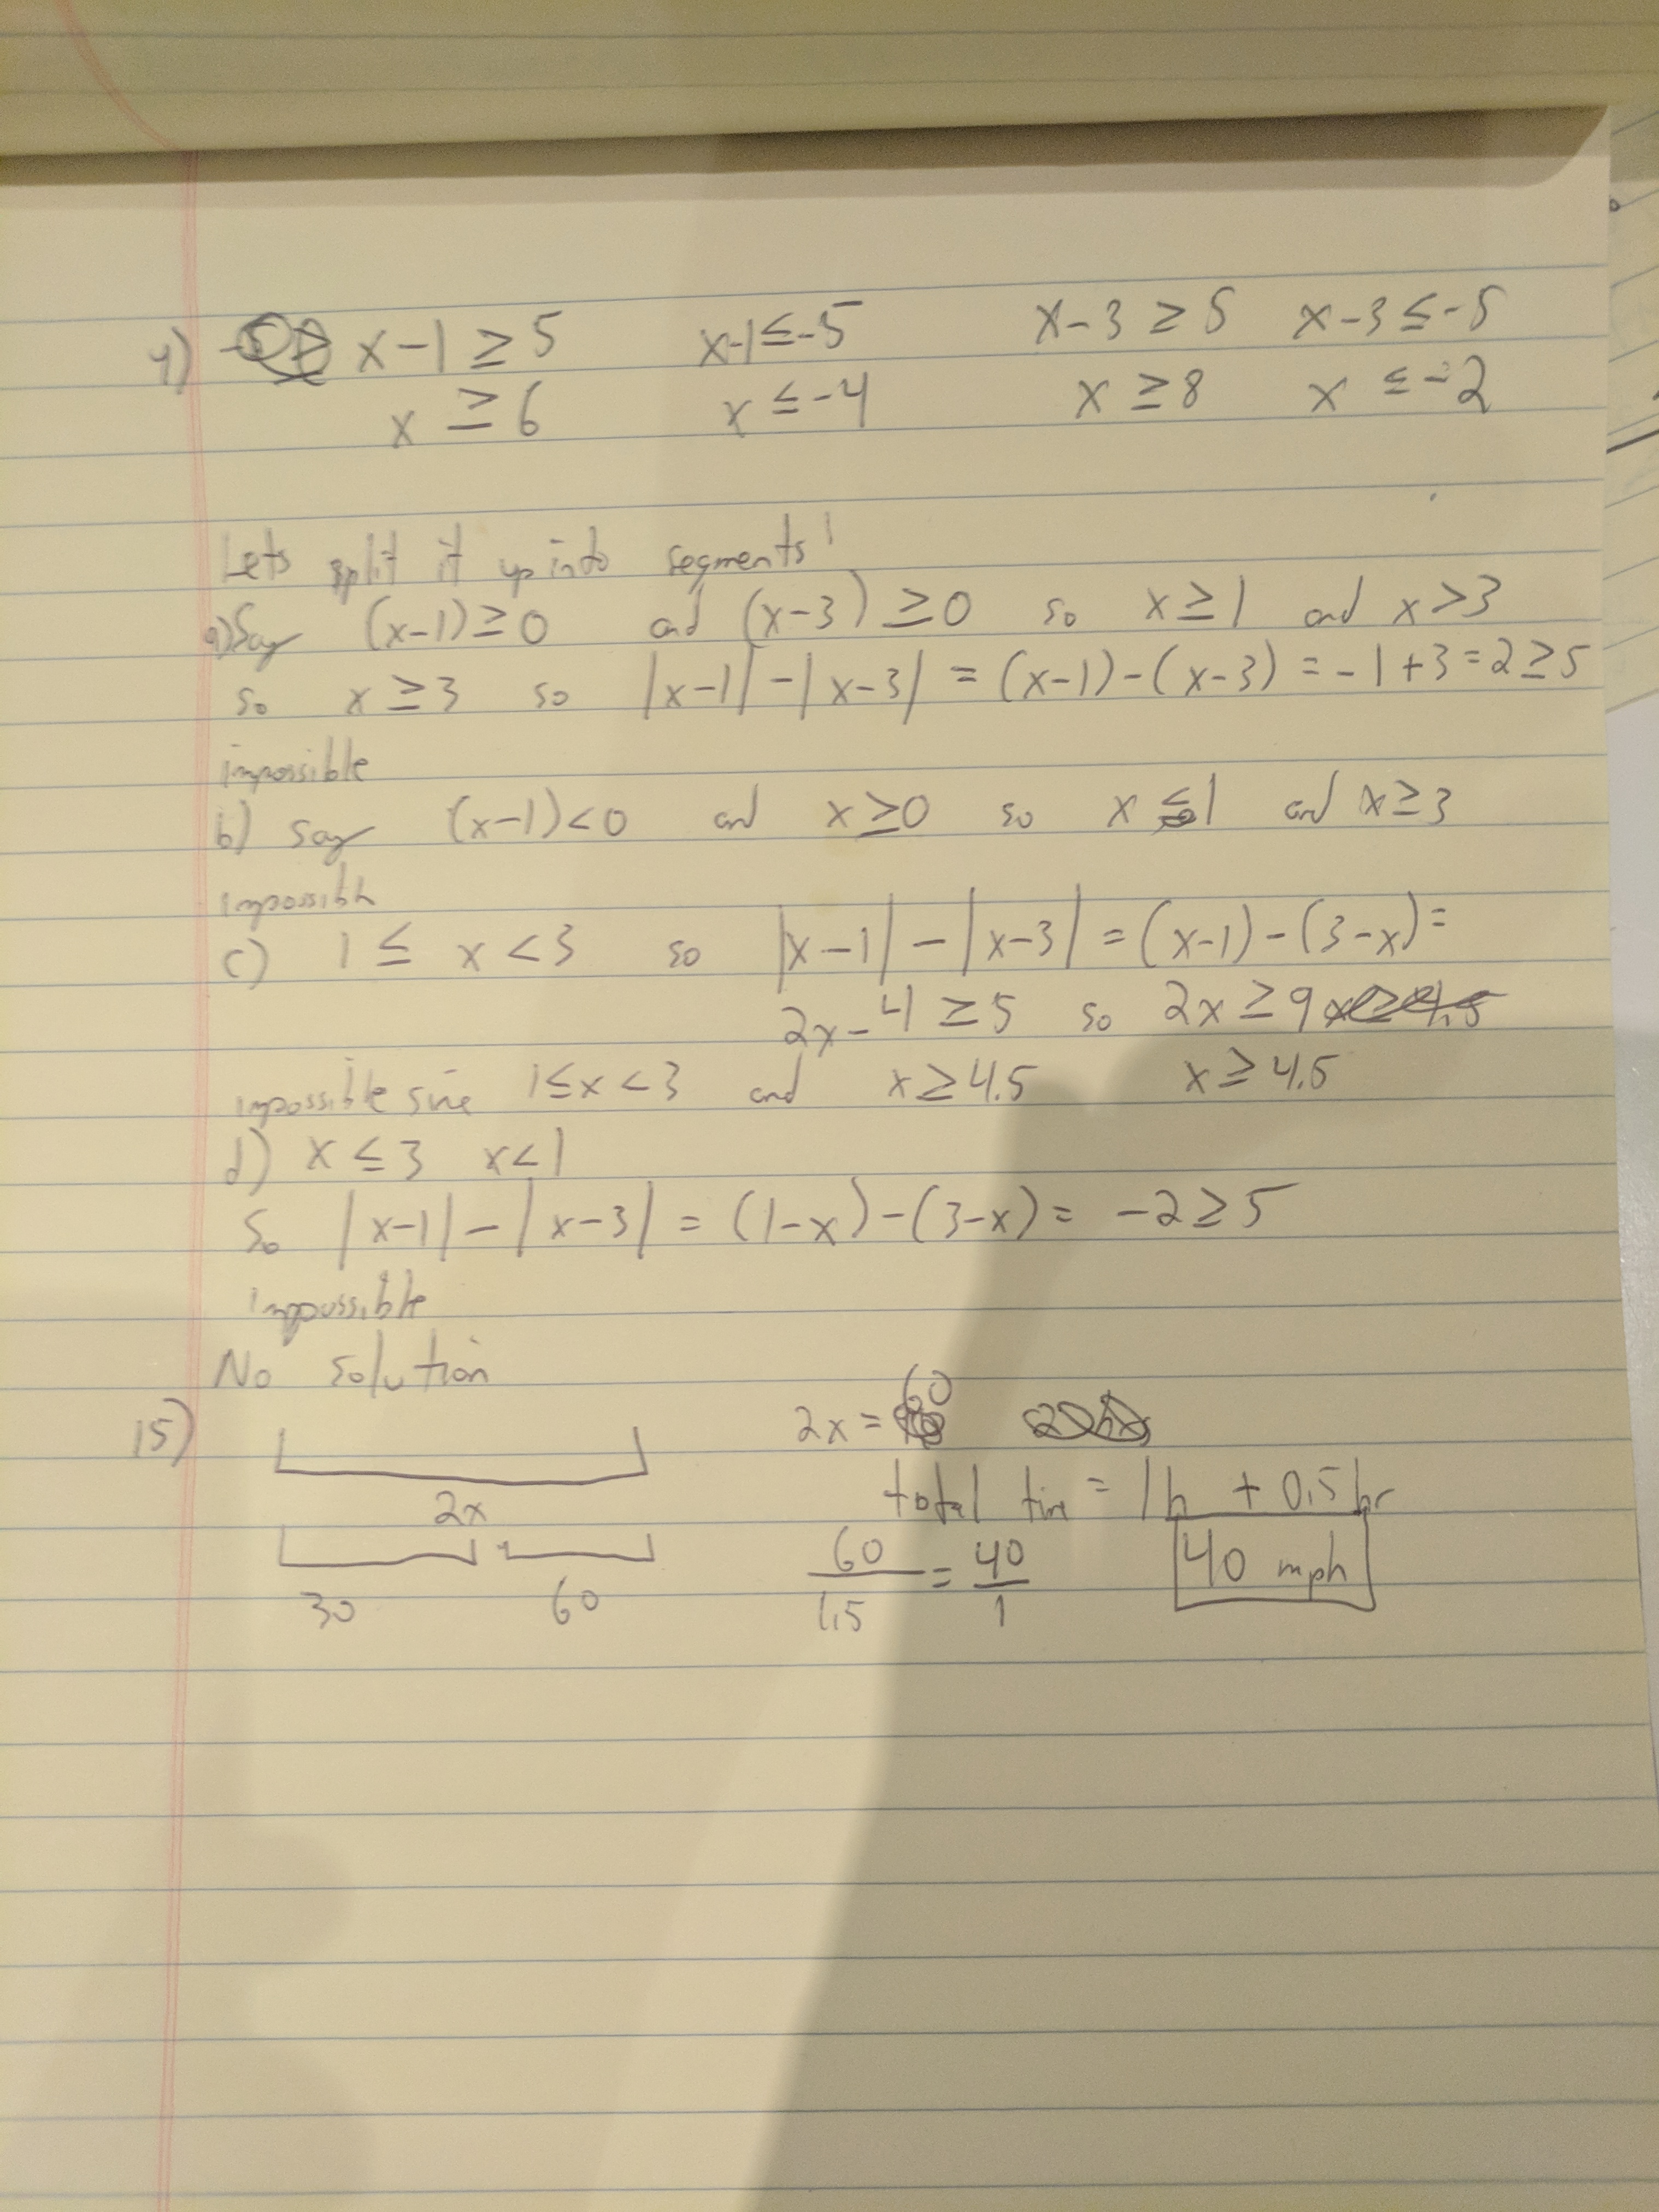 4) x-1 ≥ 5 x-1 ≤ -5 x-3 ≥ 5 x-3 ≤ -5
x ≥ 6 x ≤ -4 x ≥ 8 x ≤ -2
Lets split it up into segments!
a) Say (x-1) ≥ 0 and (x-3) ≥ 0 so x ≥ 1 and x > 3
so x ≥ 3 so |x-1| - |x-3| = (x-1) - (x-3) = -1 + 3 = 2 ≥ 5
impossible
b) say (x-1) < 0 and x ≥ 0 so x ≤ 1 and x ≥ 3
impossible
c) 1 ≤ x < 3 so |x-1| - |x-3| = (x-1) - (3-x) =
2x - 4 ≥ 5 so 2x ≥ 9
x ≥ 4.5
impossible sine 1 ≤ x < 3 and x ≥ 4.5
d) x ≤ 3 x < 1
So |x-1| - |x-3| = (1-x) - (3-x) = -2 ≥ 5
Impossible
No solution
15) 2x = 60
total time = 1h + 0.5 hr
2x
60/1.5 = 40/1 40 mph
30 60